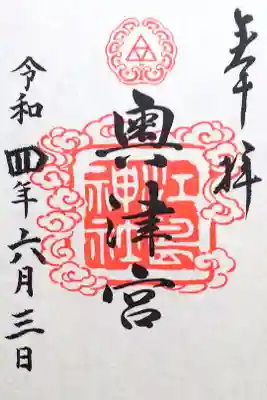 奉拝
奥津宮
江島神社
令和四年六月三日